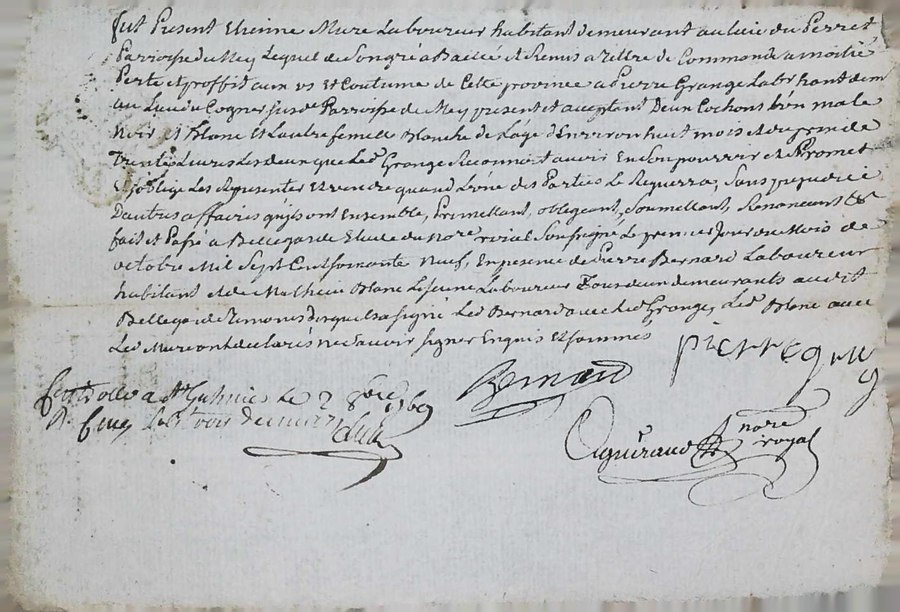 fut Present Etienne Mure Laboureur habitant demeurant au lieu du Perret
Parroisse de Mey Lequel de Son gré a Baillé et Remis a tittre de Commande a moitié
Perte et proffit aux us et Coutume de Cette province a Pierre Grange Labr habt dem
au Lieu du Cogner susde Parroisse de Mey present et acceptent Deux Cochons bien male
Noir et Blanc et Lautre femelle Blanche de Lage d'Environ huit mois et du prix de
Trente Livres Les deux que Led Grange Reconnoit avoir En Son pouvoir et Promet
et soblige Les Representer et vendre quand L'une des Parties Le Requerra, Sans prejudice
Dautres affaires quils ont Ensemble, Promettant, obligeant, Soumettant, Renoncant &c
fait et Passé a Bellegarde Etude du Nore roial Soussigné Le premier Jour du Mois de
octobre Mil Sept Cent soixante Neuf, En presence de Pierre Bernard Laboureur
habitant et de Mathieu Blanc Le Jeune Laboureur Tous deux demeurants audit
Bellegarde Temoins Lesquels a signé Led Bernard avec led Grange, Led Blanc avec
Led Mure ont declarés ne Savoir signer Enquis et sommés
pierre grng
Bernard
Conttrollé a St le 3 8bre 1769
Reçu
nore
royal